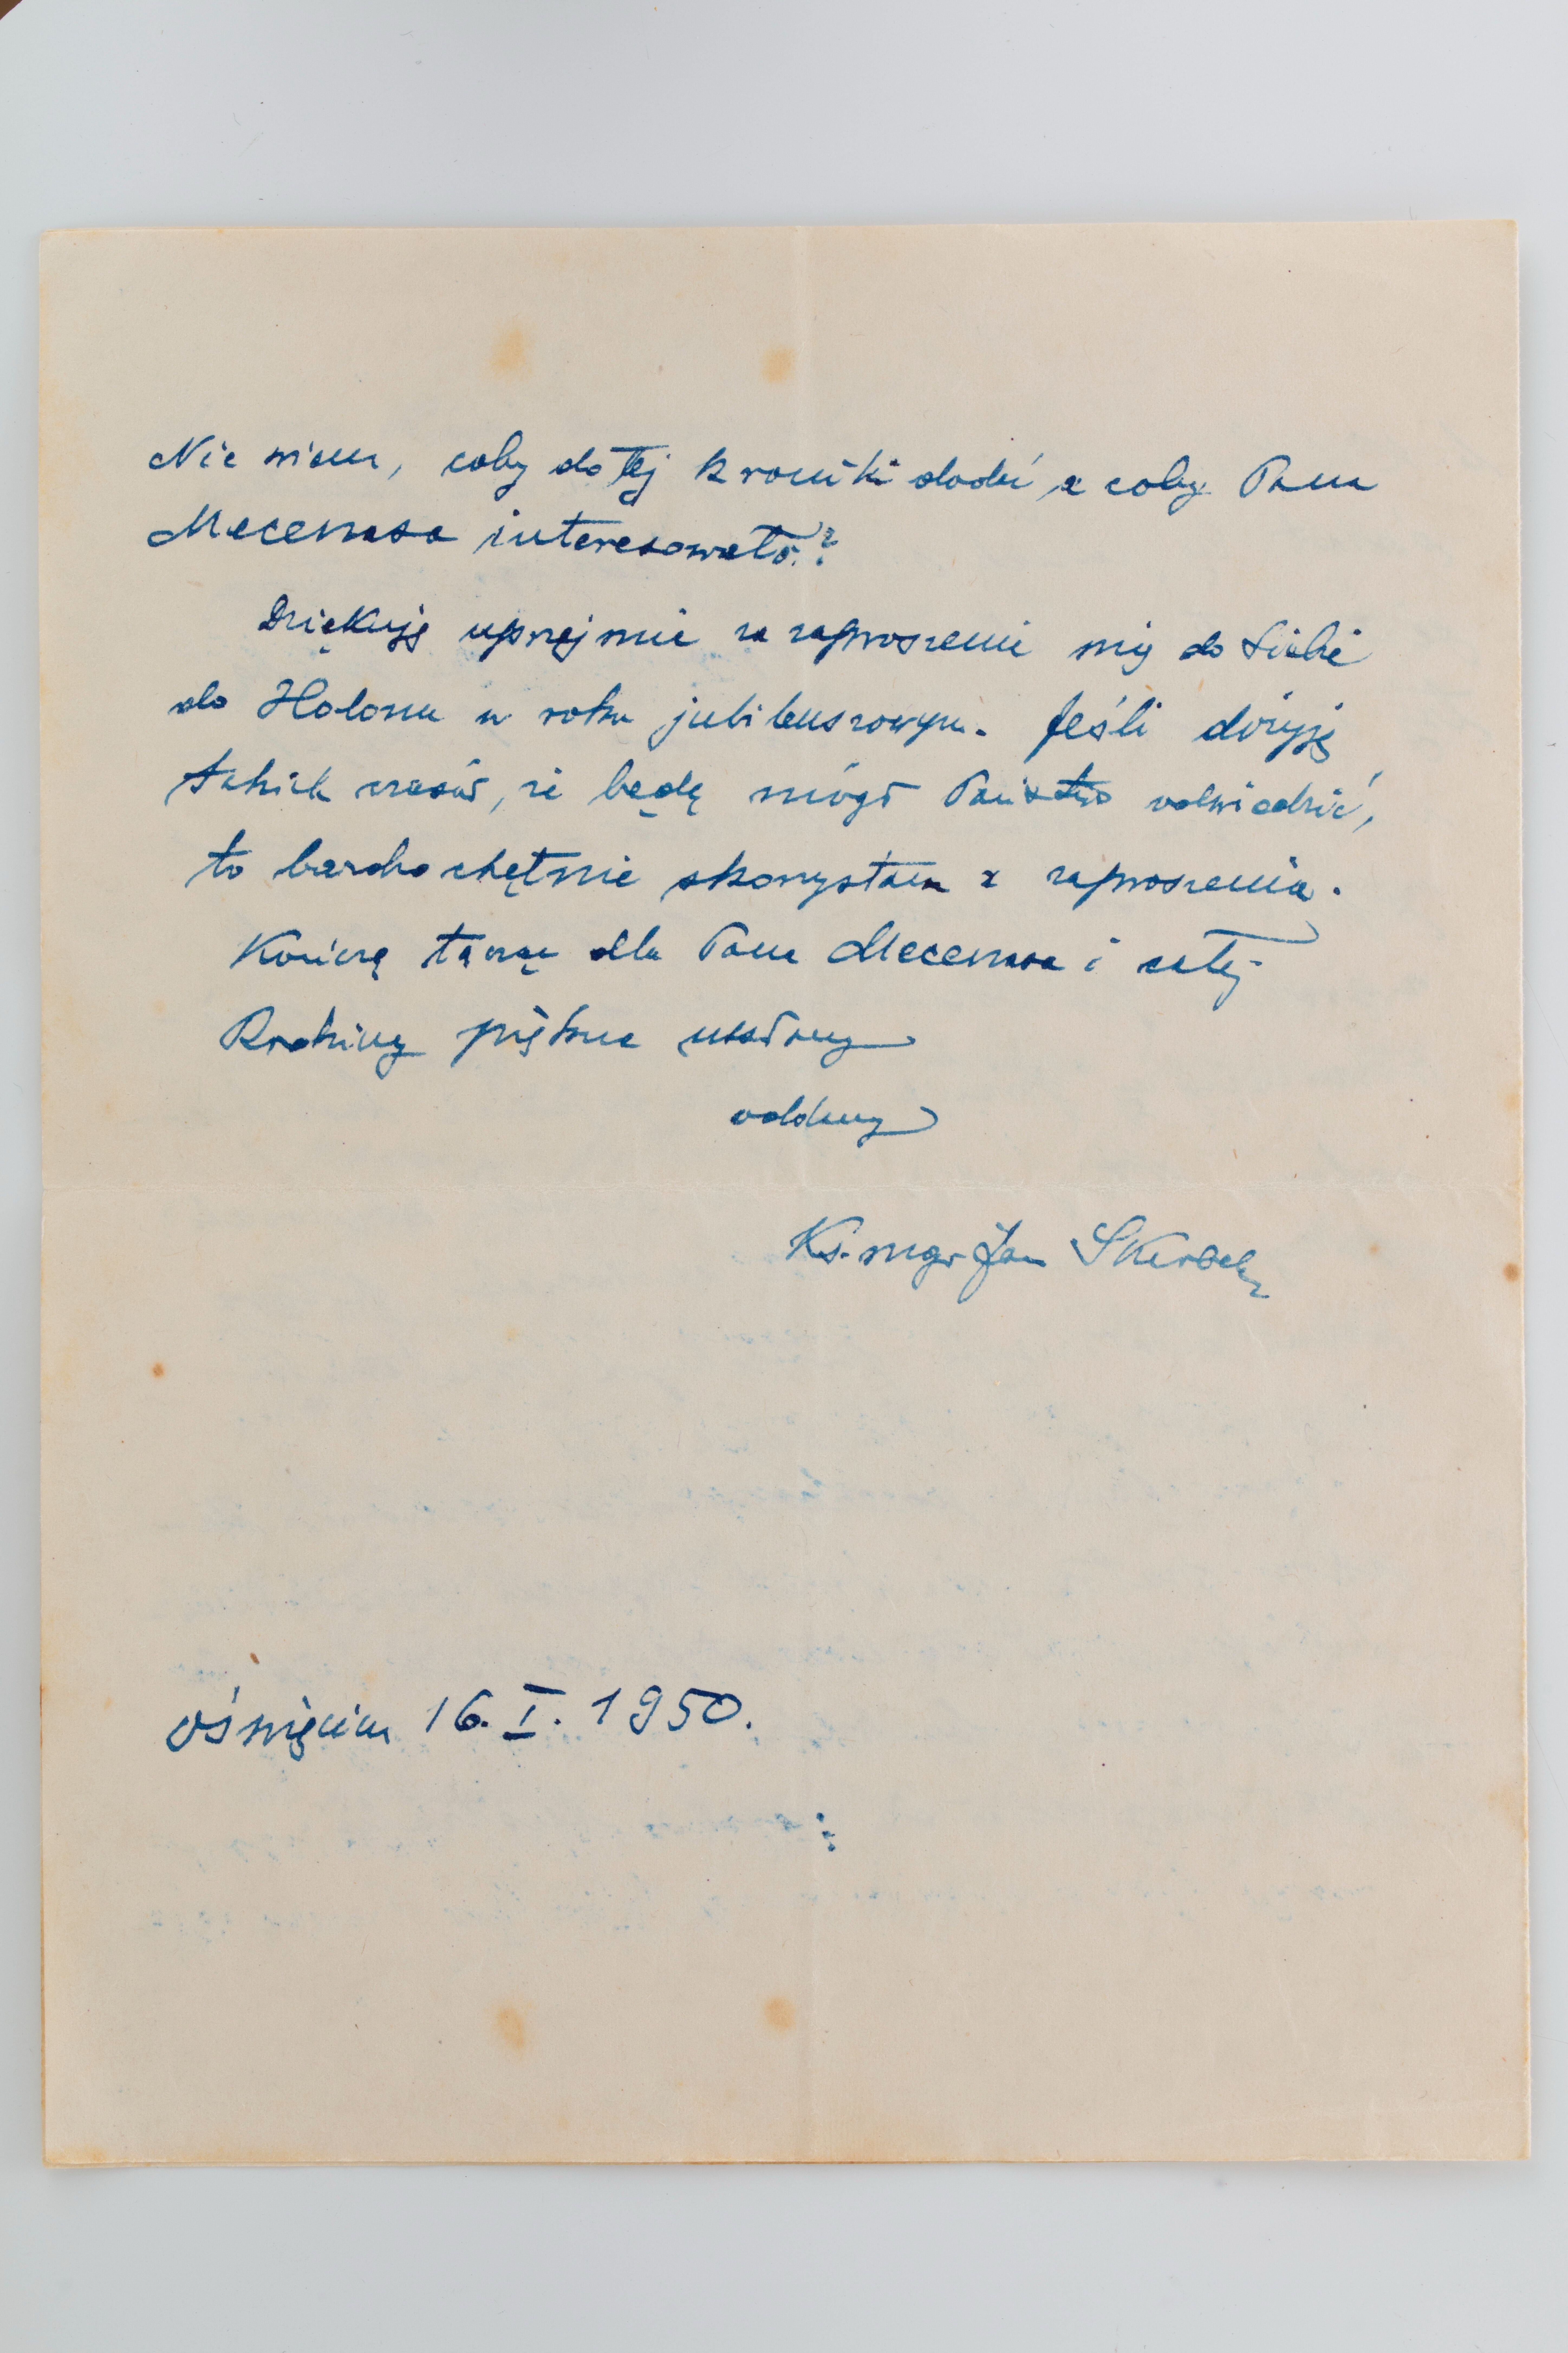 Nie wiem, coby do tej kroniki dodać, a coby Pana
Mecenasa interesowało.?
Dziękuję uprzejmie za zaproszenie mię do siebie
do Holonu w roku jubileuszowym. Jeśli dożyję
takich czasów, że będę mógł Państwo odwiedzić,
to bardzo chętnie skorzystam z zaproszenia.
Kończę łącząc dla Pana Mecenasa i całej
Rodziny piękne ukłony
oddany
Ks. mgr Jan Skarbek
Oświęcim 16. I. 1950.